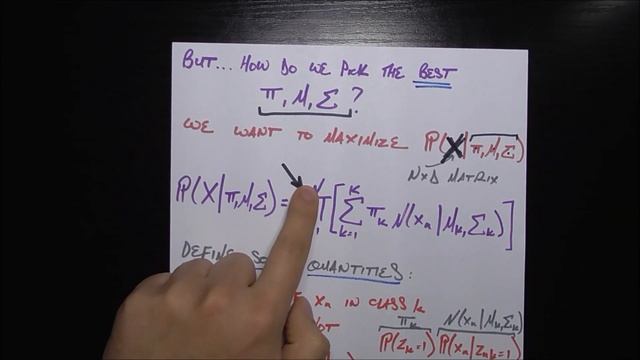 BUT... HOW DO WE PICK THE BEST
π, μ, Σ ?
WE WANT TO MAXIMIZE P(X|π,μ,Σ)
N×D MATRIX
P(X|π,μ,Σ) = [Σ k=1 K π_k N(x_n|μ_k,Σ_k)]
DEFINE QUANTITIES:
x_n IN CLASS k
π_k N(x_n|μ_k,Σ_k)
P(z_k=1) P(x_n|z_k=1)